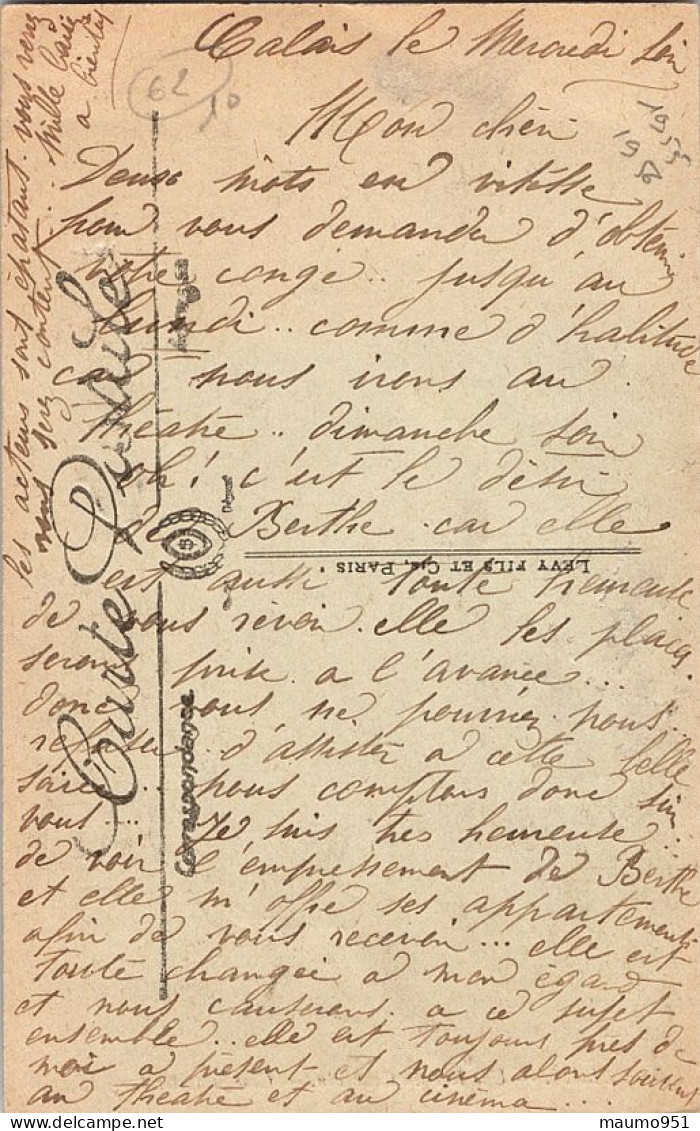 Calais le Mercredi soir
62
10
1955
1956
Mon chéri
Deux mots en vitesse
pour vous demander d'obtenir
votre congé.. jusqu'au
lundi.. comme d'habitude
car nous irons au
théâtre.. dimanche soir
oh! c'est le désir
de Berthe car elle
est aussi toute heureuse
de vous revoir. elle les places
seront prise a l'avance...
donc vous ne pourrez nous..
refuser d'assister a cette belle
soirée... nous comptons donc sur
vous.... Je suis tres heureuse...
de voir l'empressement de Berthe
et elle m'offre ses appartements
afin de vous recevoir... elle est
toute changée a mon égard
et nous causerons a ce sujet
ensemble.. elle est toujours près de
moi a présent et nous alons souvent
au théatre et au cinéma....
les acteurs sont épatant. vous verrez
vous serez content... Mille baisers
a bientôt
Carte Postale
Correspondance
LEVY FILS ET Cie, PARIS.
maumo951